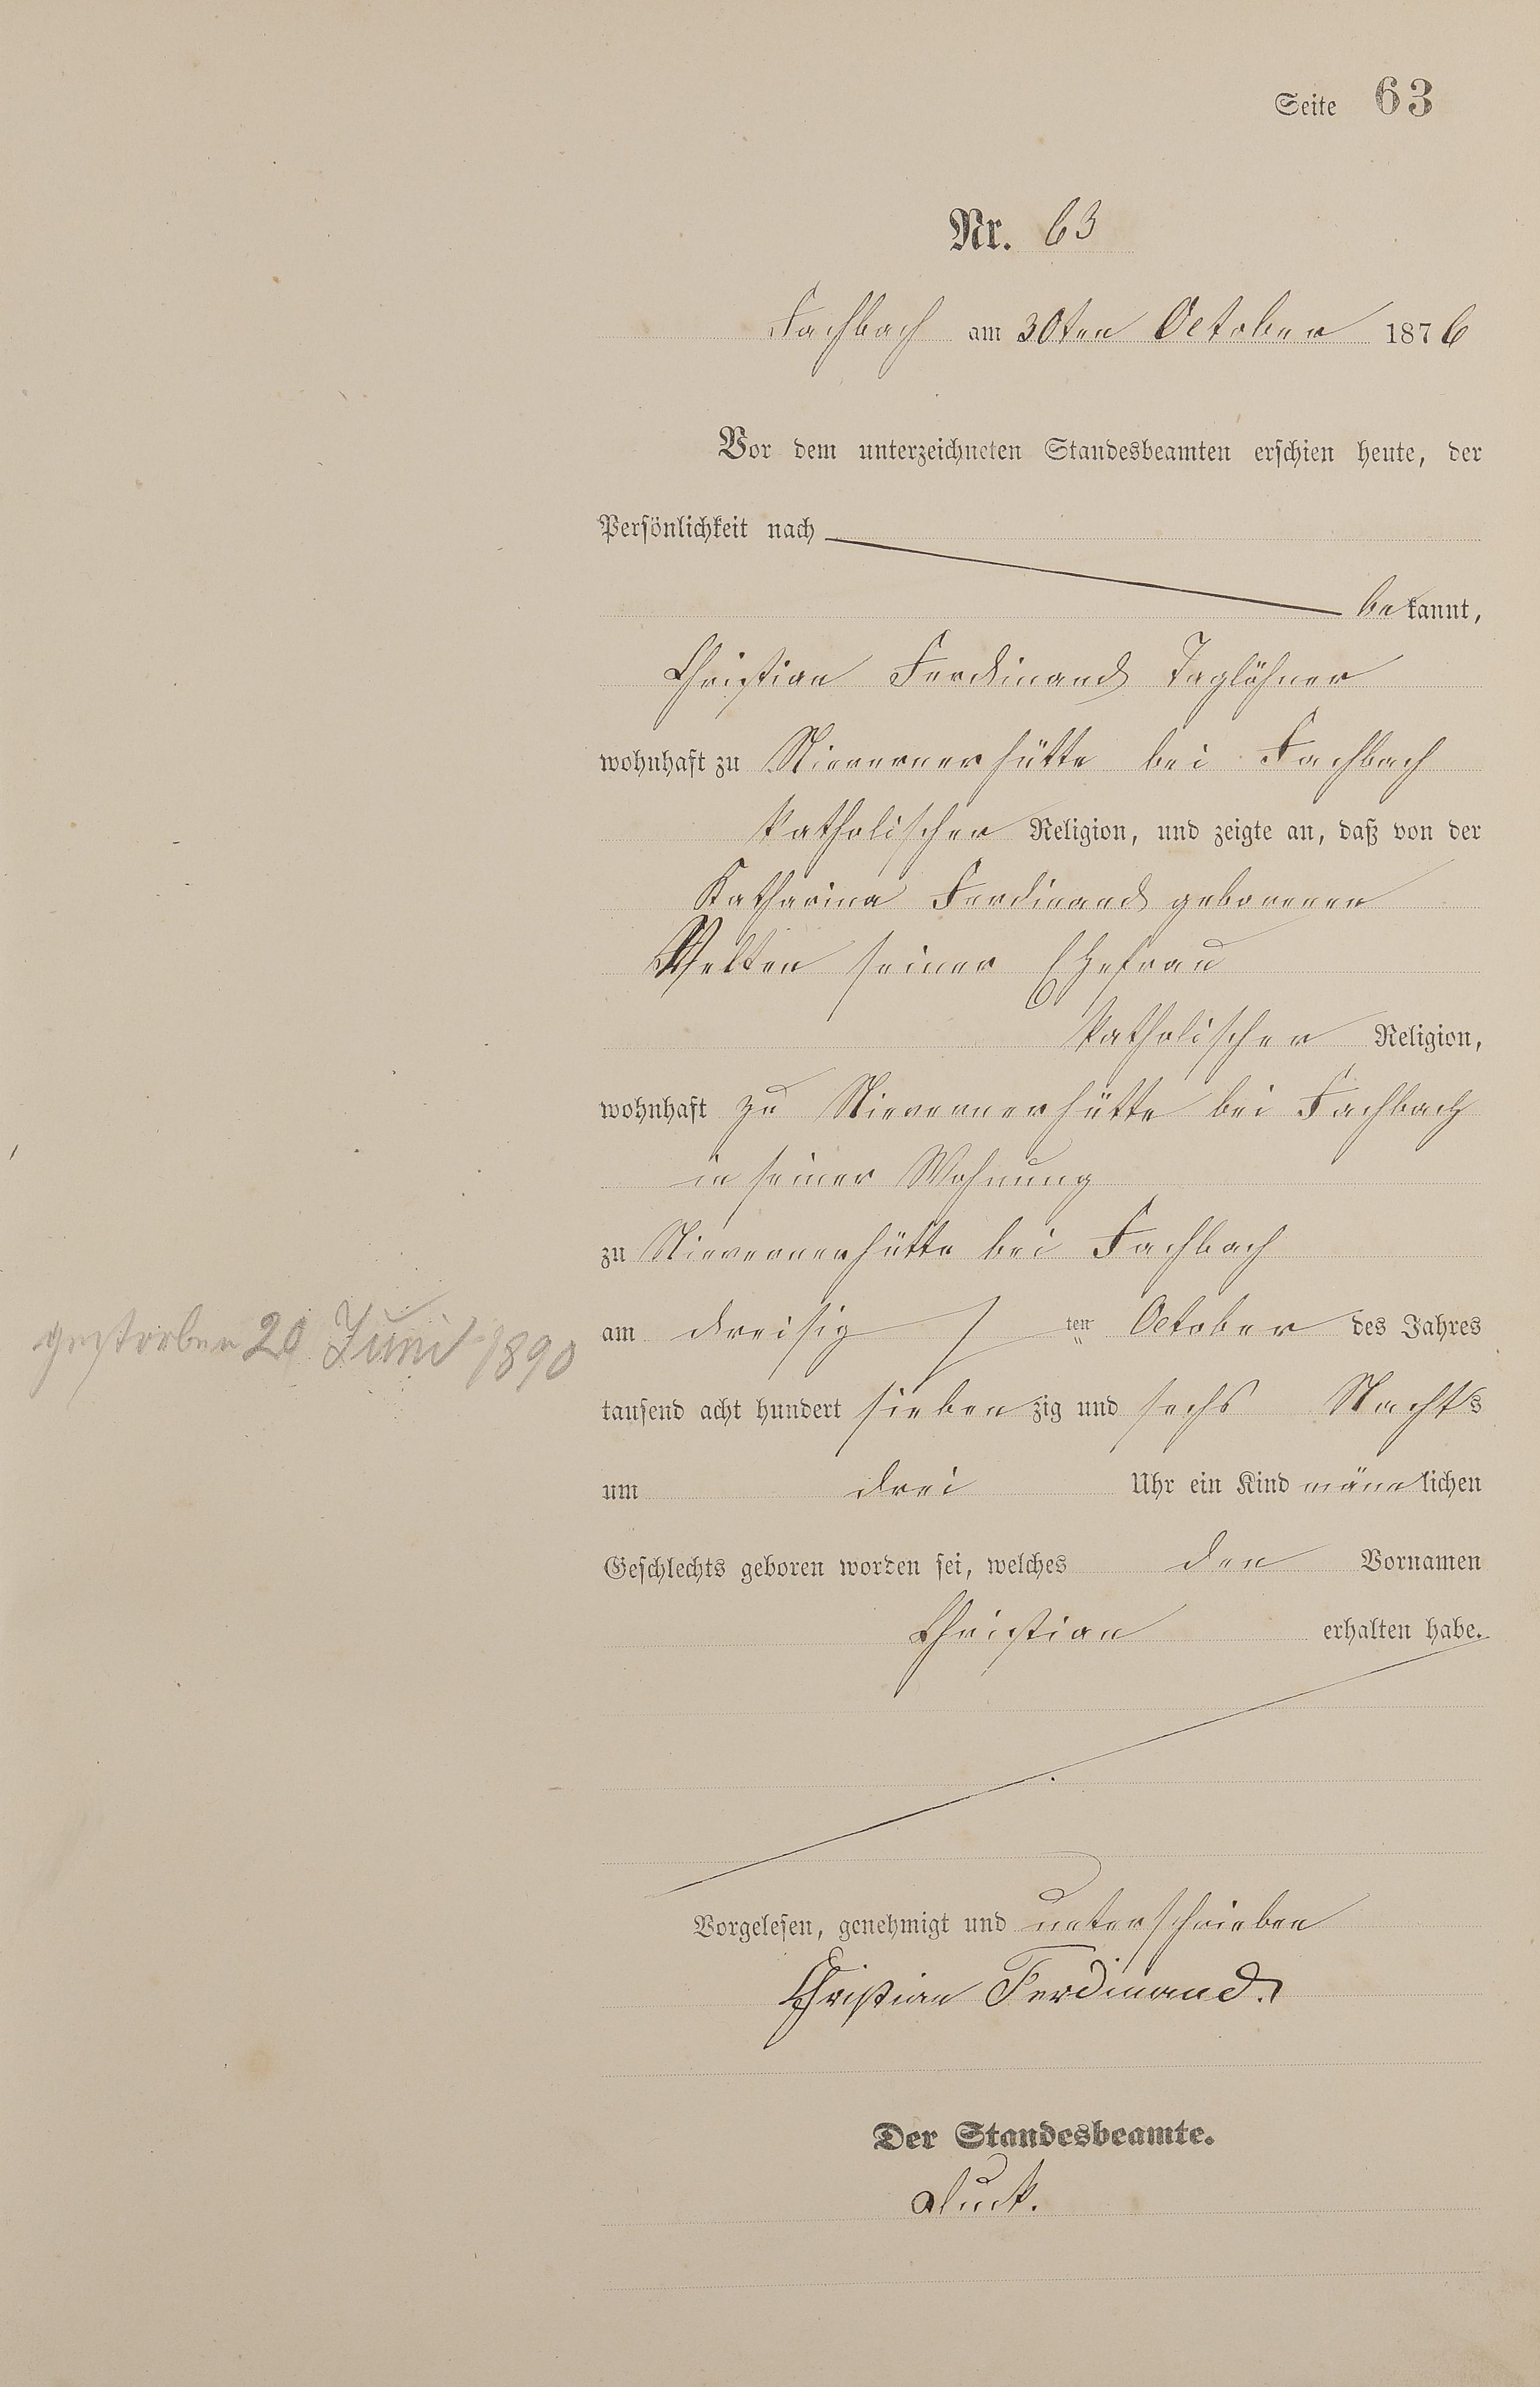 Seite 63
Nr. 63
Fachbach am 30ten October 1876
Vor dem unterzeichneten Standesbeamten erschien heute, der
Persönlichkeit nach
bekannt,
Christian Ferdinand Taglöhner
wohnhaft zu Nievernerhütte bei Fachbach
katholischer Religion, und zeigte an, daß von der
Katharina Ferdinand geborenen
Welten seiner Ehefrau
katholischer Religion,
wohnhaft zu Nievernerhütte bei Fachbach
in seiner Wohnung
zu Nievernerhütte bei Fachbach
gestorben 20 Juni 1890
am dreisig ten October des Jahres
tausend acht hundert siebenzig und sechs Nachts
um drei Uhr ein Kind männlichen
Geschlechts geboren worden sei, welches den Vornamen
Christian erhalten habe.
Vorgelesen, genehmigt und unterschrieben
Christian Ferdinand.
Der Standesbeamte.